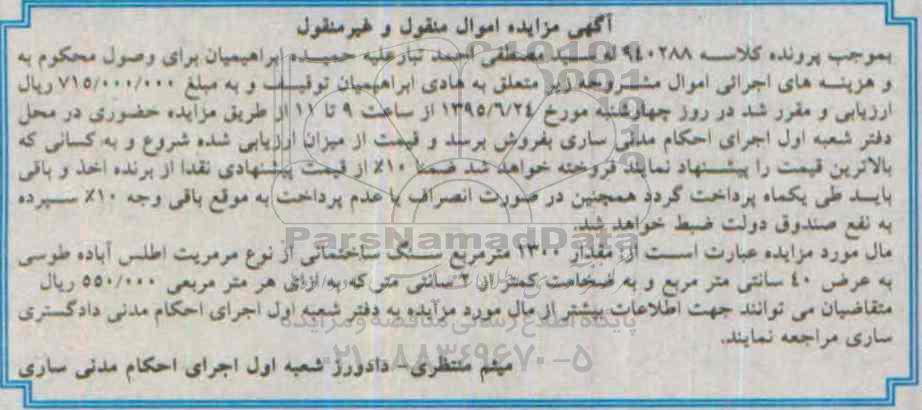 آگهی مزایده اموال منقول و غیرمنقول
بموجب پرونده کلاسه ۹۴۰۲۸۸ له سید مصطفی احمد تبارعلیه حمیده ابراهیمیان برای وصول محکوم به
و هزینه های اجرائی اموال مشروحه زیر متعلق به هادی ابراهیمیان توقیف و به مبلغ ۷۱۵/۰۰۰/۰۰۰ ریال
ارزیابی و مقرر شد در روز چهارشنبه مورخ ۱۳۹۵/۶/۲۴ از ساعت ۹ تا ۱۱ از طریق مزایده حضوری در محل
دفتر شعبه اول اجرای احکام مدنی ساری بفروش برسد و قیمت از میزان ارزیابی شده شروع و به کسانی که
بالاترین قیمت را پیشنهاد نمایند فروخته خواهد شد ضمنا ۱۰٪ از قیمت پیشنهادی نقدا از برنده اخذ و باقی
باید طی یکماه پرداخت گردد همچنین در صورت انصراف یا عدم پرداخت به موقع باقی وجه ۱۰٪ سپرده
به نفع صندوق دولت ضبط خواهد شد.
ParsNamadData
مال مورد مزایده عبارت است از: مقدار ۱۳۰۰ مترمربع سنگ ساختمانی از نوع مرمریت اطلس آباده طوسی
به عرض ۴۰ سانتی متر مربع و به ضخامت کمتر از ۲ سانتی متر که به ازای هر متر مربعی ۵۵۰/۰۰۰ ریال
متقاضیان می توانند جهت اطلاعات بیشتر از مال مورد مزایده به دفتر شعبه اول اجرای احکام مدنی دادگستری
پایگاه اطلاع رسانی مناقصه و مزایده
ساری مراجعه نمایند.
۰۲۱-۸۸۳۴۹۶۷۰-۵
میثم منتظری- دادورز شعبه اول اجرای احکام مدنی ساری